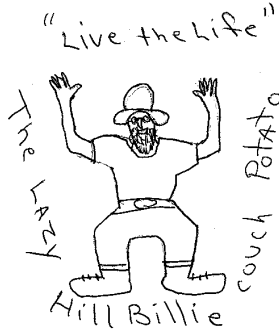 "Live the Life"
The LAZY
Hill Billie
couch Potato